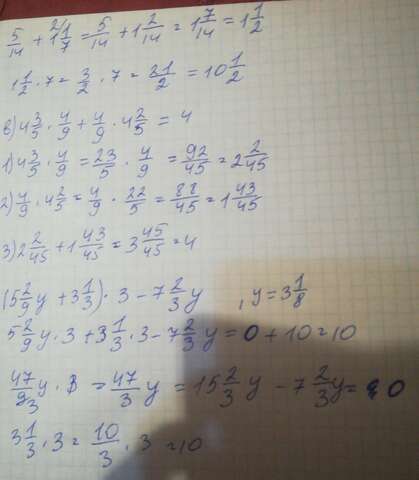 5/14 + 1 1/7 = 5/14 + 1 2/14 = 1 7/14 = 1 1/2
1 1/2 · 7 = 3/2 · 7 = 21/2 = 10 1/2
в) 4 3/5 · 4/9 + 4/9 · 4 2/5 = 4
1) 4 3/5 · 4/9 = 23/5 · 4/9 = 92/45 = 2 2/45
2) 4/9 · 4 2/5 = 4/9 · 22/5 = 88/45 = 1 43/45
3) 2 2/45 + 1 43/45 = 3 45/45 = 4
(5 2/9 y + 3 1/3) · 3 - 7 2/3 y , y = 3 1/8
5 2/9 y · 3 + 3 1/3 · 3 - 7 2/3 y = 0 + 10 = 10
47/9 3 y · 3 = 47/3 y = 15 2/3 y - 7 2/3 y = 0
3 1/3 · 3 = 10/3 · 3 = 10